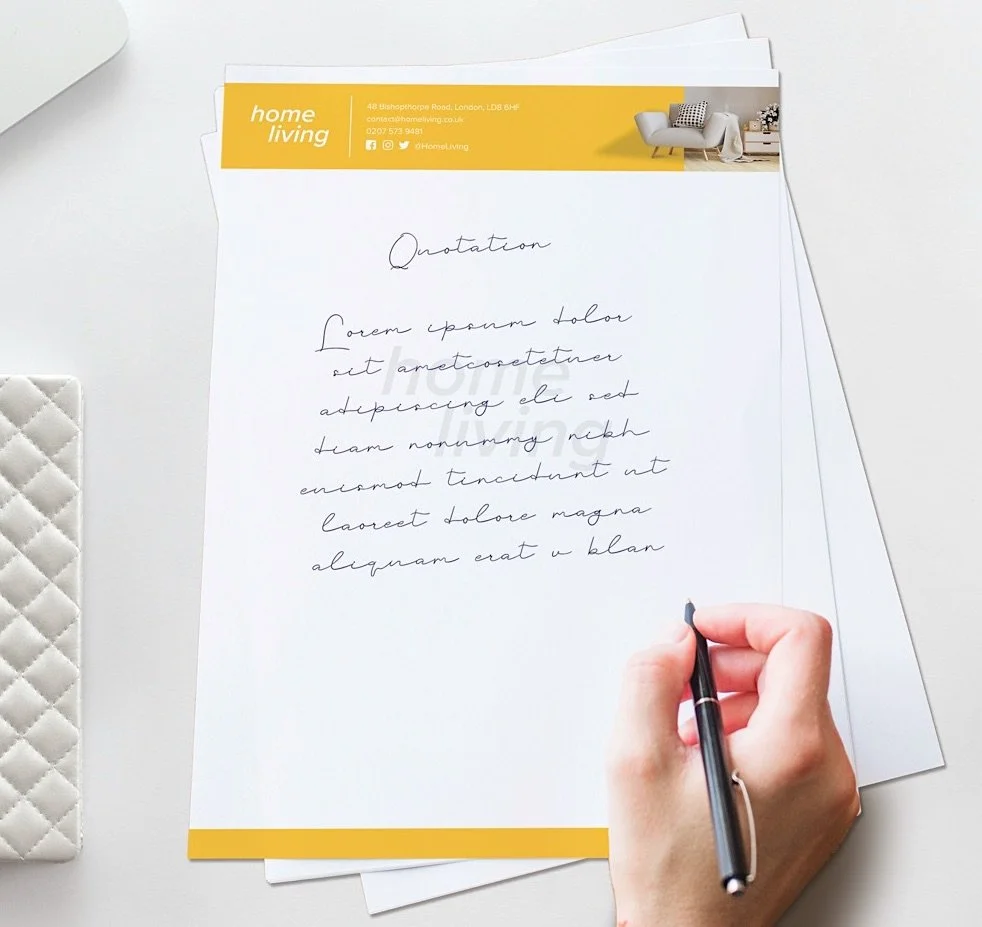 home
living
48 Bishopthorpe Road, London, LD8 6HF
contact@homeliving.co.uk
0207 573 9481
@HomeLiving
Quotation
Lorem ipsum dolor
sit ametcosetetuer
adipiscing eli sed
diam nonummy nibh
euismod tincidunt ut
laoreet dolore magna
aliquam erat v blan
home
living